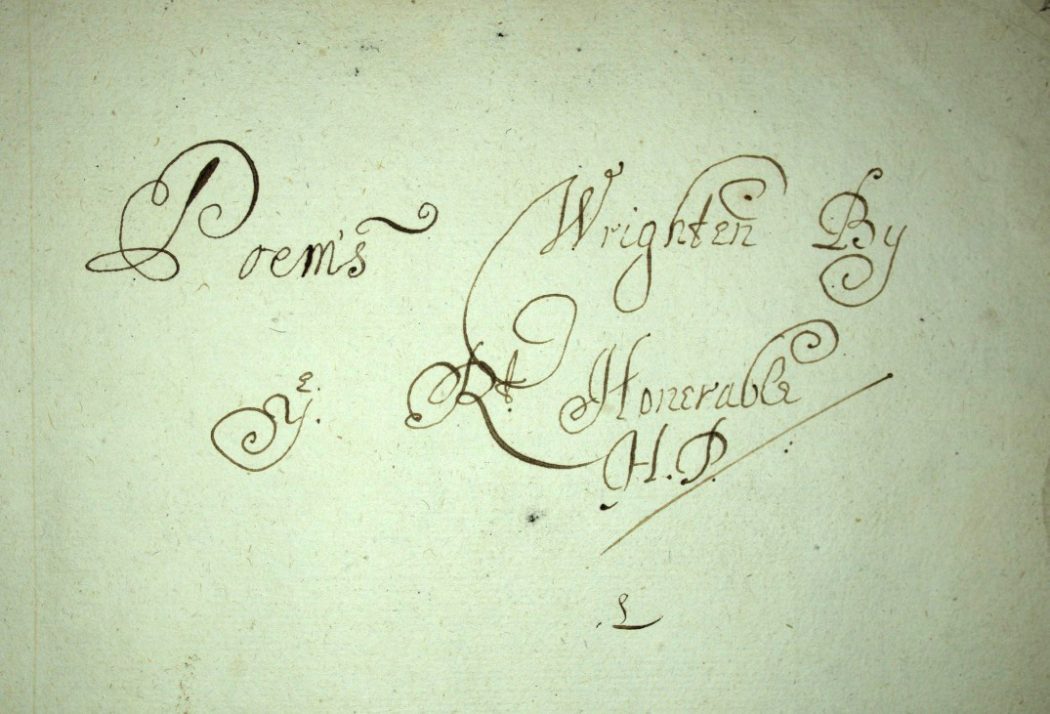 Poem's Wrighten By
yᵉ. Rt. Honerable
H.P.